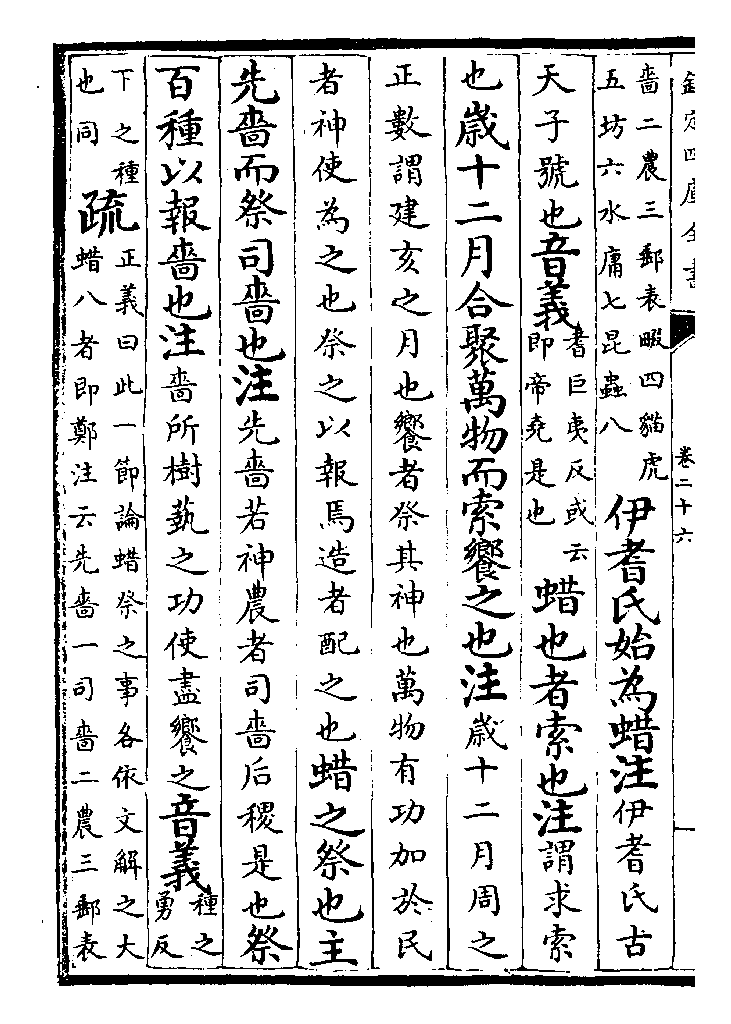 欽定四庫全書
卷二十六
嗇二農三郵表畷四貓虎
五坊六水庸七昆蟲八
伊耆氏始為蜡注伊耆氏古
天子號也音義
耆巨夷反或云
即帝堯是也
蜡也者索也注謂求索
也歲十二月合聚萬物而索饗之也注歲十二月周之
正數謂建亥之月也饗者祭其神也萬物有功加於民
者神使為之也祭之以報焉造者配之也蜡之祭也主
先嗇而祭司嗇也注先嗇若神農者司嗇后稷是也祭
百種以報嗇也注嗇所樹蓺之功使盡饗之音義
種之
勇反
下之種
也同
疏
正義曰此一節論蜡祭之事各依文解之大
蜡八者即鄭注云先嗇一司嗇二農三郵表